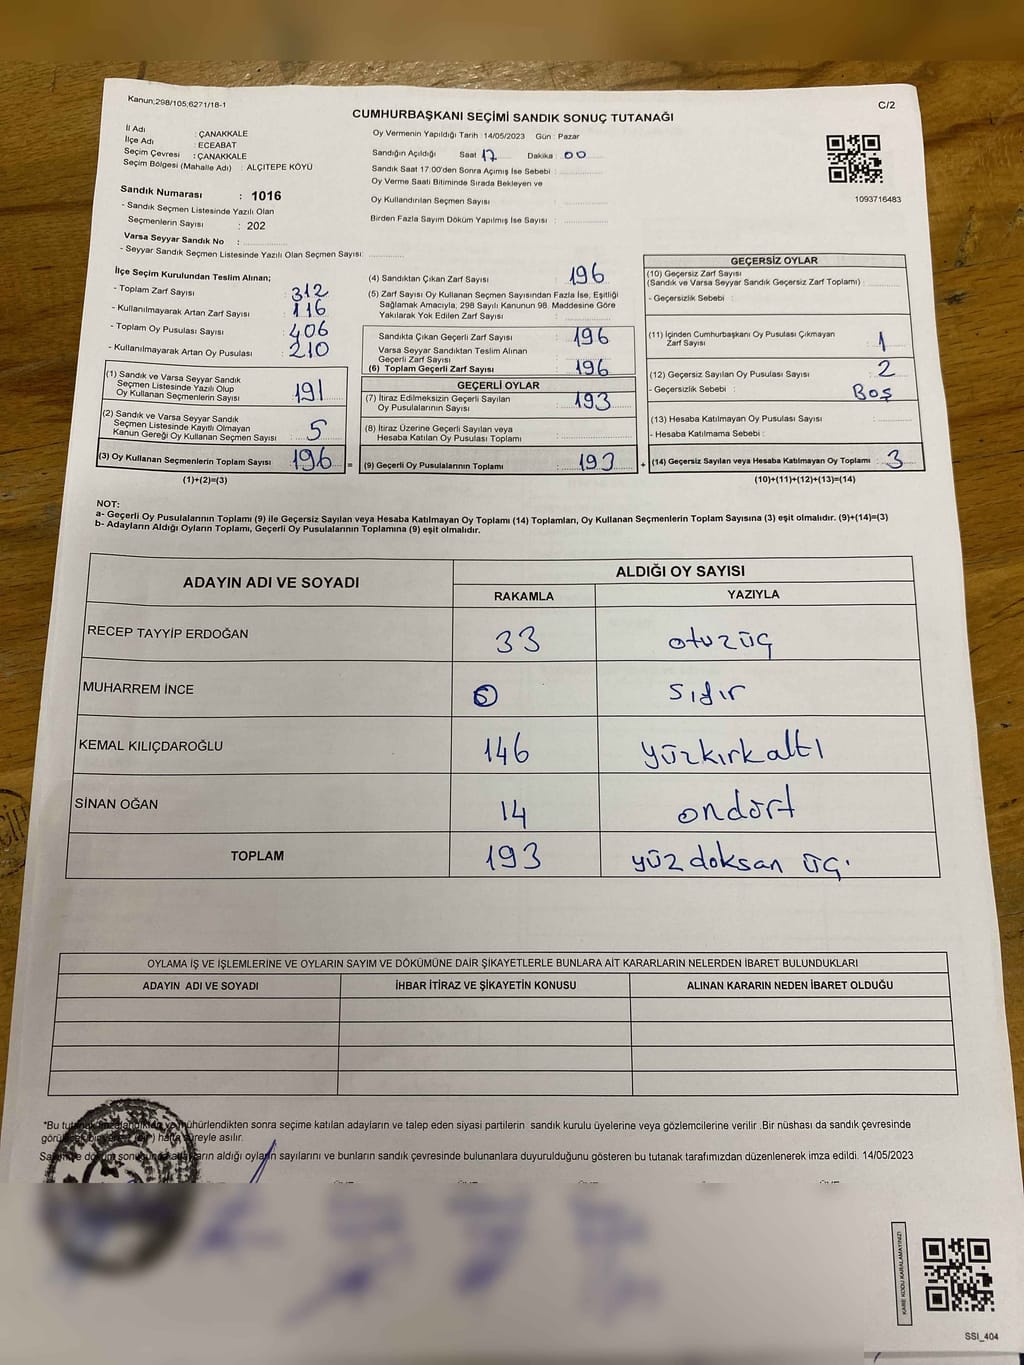 Kanun;298/105;6271/18-1
C/2
CUMHURBAŞKANI SEÇİMİ SANDIK SONUÇ TUTANAĞI
İl Adı : ÇANAKKALE
İlçe Adı : ECEABAT
Seçim Çevresi : ÇANAKKALE
Seçim Bölgesi (Mahalle Adı) : ALÇITEPE KÖYÜ
Sandık Numarası : 1016
- Sandık Seçmen Listesinde Yazılı Olan
Seçmenlerin Sayısı : 202
Varsa Seyyar Sandık No :
- Seyyar Sandık Seçmen Listesinde Yazılı Olan Seçmen Sayısı:
Oy Vermenin Yapıldığı Tarih : 14/05/2023 Gün : Pazar
Sandığın Açıldığı Saat 17 Dakika : 00
Sandık Saat 17:00'den Sonra Açımış İse Sebebi :
Oy Verme Saati Bitiminde Sırada Bekleyen ve
Oy Kullandırılan Seçmen Sayısı :
Birden Fazla Sayım Döküm Yapılmış İse Sayısı :
1093716483
İlçe Seçim Kurulundan Teslim Alınan;
- Toplam Zarf Sayısı : 312
- Kullanılmayarak Artan Zarf Sayısı : 116
- Toplam Oy Pusulası Sayısı : 406
- Kullanılmayarak Artan Oy Pusulası : 210
(1) Sandık ve Varsa Seyyar Sandık
Seçmen Listesinde Yazılı Olup
Oy Kullanan Seçmenlerin Sayısı : 191
(2) Sandık ve Varsa Seyyar Sandık
Seçmen Listesinde Kayıtlı Olmayan
Kanun Gereği Oy Kullanan Seçmen Sayısı : 5
(3) Oy Kullanan Seçmenlerin Toplam Sayısı : 196
(1)+(2)=(3)
(4) Sandıktan Çıkan Zarf Sayısı : 196
(5) Zarf Sayısı Oy Kullanan Seçmen Sayısından Fazla İse, Eşitliği
Sağlamak Amacıyla, 298 Sayılı Kanunun 98. Maddesine Göre
Yakılarak Yok Edilen Zarf Sayısı :
Sandıkta Çıkan Geçerli Zarf Sayısı : 196
Varsa Seyyar Sandıktan Teslim Alınan
Geçerli Zarf Sayısı :
(6) Toplam Geçerli Zarf Sayısı : 196
GEÇERLİ OYLAR
(7) İtiraz Edilmeksizin Geçerli Sayılan
Oy Pusulalarının Sayısı : 193
(8) İtiraz Üzerine Geçerli Sayılan veya
Hesaba Katılan Oy Pusulası Toplamı :
= (9) Geçerli Oy Pusulalarının Toplamı : 193
GEÇERSİZ OYLAR
(10) Geçersiz Zarf Sayısı
(Sandık ve Varsa Seyyar Sandık Geçersiz Zarf Toplamı) :
- Geçersizlik Sebebi :
(11) İçinden Cumhurbaşkanı Oy Pusulası Çıkmayan
Zarf Sayısı : 1
(12) Geçersiz Sayılan Oy Pusulası Sayısı : 2
- Geçersizlik Sebebi : Boş
(13) Hesaba Katılmayan Oy Pusulası Sayısı :
- Hesaba Katılmama Sebebi :
+ (14) Geçersiz Sayılan veya Hesaba Katılmayan Oy Toplamı : 3
(10)+(11)+(12)+(13)=(14)
NOT:
a- Geçerli Oy Pusulalarının Toplamı (9) ile Geçersiz Sayılan veya Hesaba Katılmayan Oy Toplamı (14) Toplamları, Oy Kullanan Seçmenlerin Toplam Sayısına (3) eşit olmalıdır. (9)+(14)=(3)
b- Adayların Aldığı Oyların Toplamı, Geçerli Oy Pusulalarının Toplamına (9) eşit olmalıdır.
ADAYIN ADI VE SOYADI
ALDIĞI OY SAYISI
RAKAMLA YAZIYLA
RECEP TAYYİP ERDOĞAN 33 otuzüç
MUHARREM İNCE 0 sıfır
KEMAL KILIÇDAROĞLU 146 yüzkırkaltı
SİNAN OĞAN 14 ondört
TOPLAM 193 yüzdoksan üç.
OYLAMA İŞ VE İŞLEMLERİNE VE OYLARIN SAYIM VE DÖKÜMÜNE DAİR ŞİKAYETLERLE BUNLARA AİT KARARLARIN NELERDEN İBARET BULUNDUKLARI
ADAYIN ADI VE SOYADI İHBAR İTİRAZ VE ŞİKAYETİN KONUSU ALINAN KARARIN NEDEN İBARET OLDUĞU
*Bu mühürlendikten sonra seçime katılan adayların ve talep eden siyasi partilerin sandık kurulu üyelerine veya gözlemcilerine verilir .Bir nüshası da sandık çevresinde
hafta süreyle asılır.
aldığı oyların sayılarını ve bunların sandık çevresinde bulunanlara duyurulduğunu gösteren bu tutanak tarafımızdan düzenlenerek imza edildi. 14/05/2023
KARE KODU KARALAMAYINIZ!
SSI_404